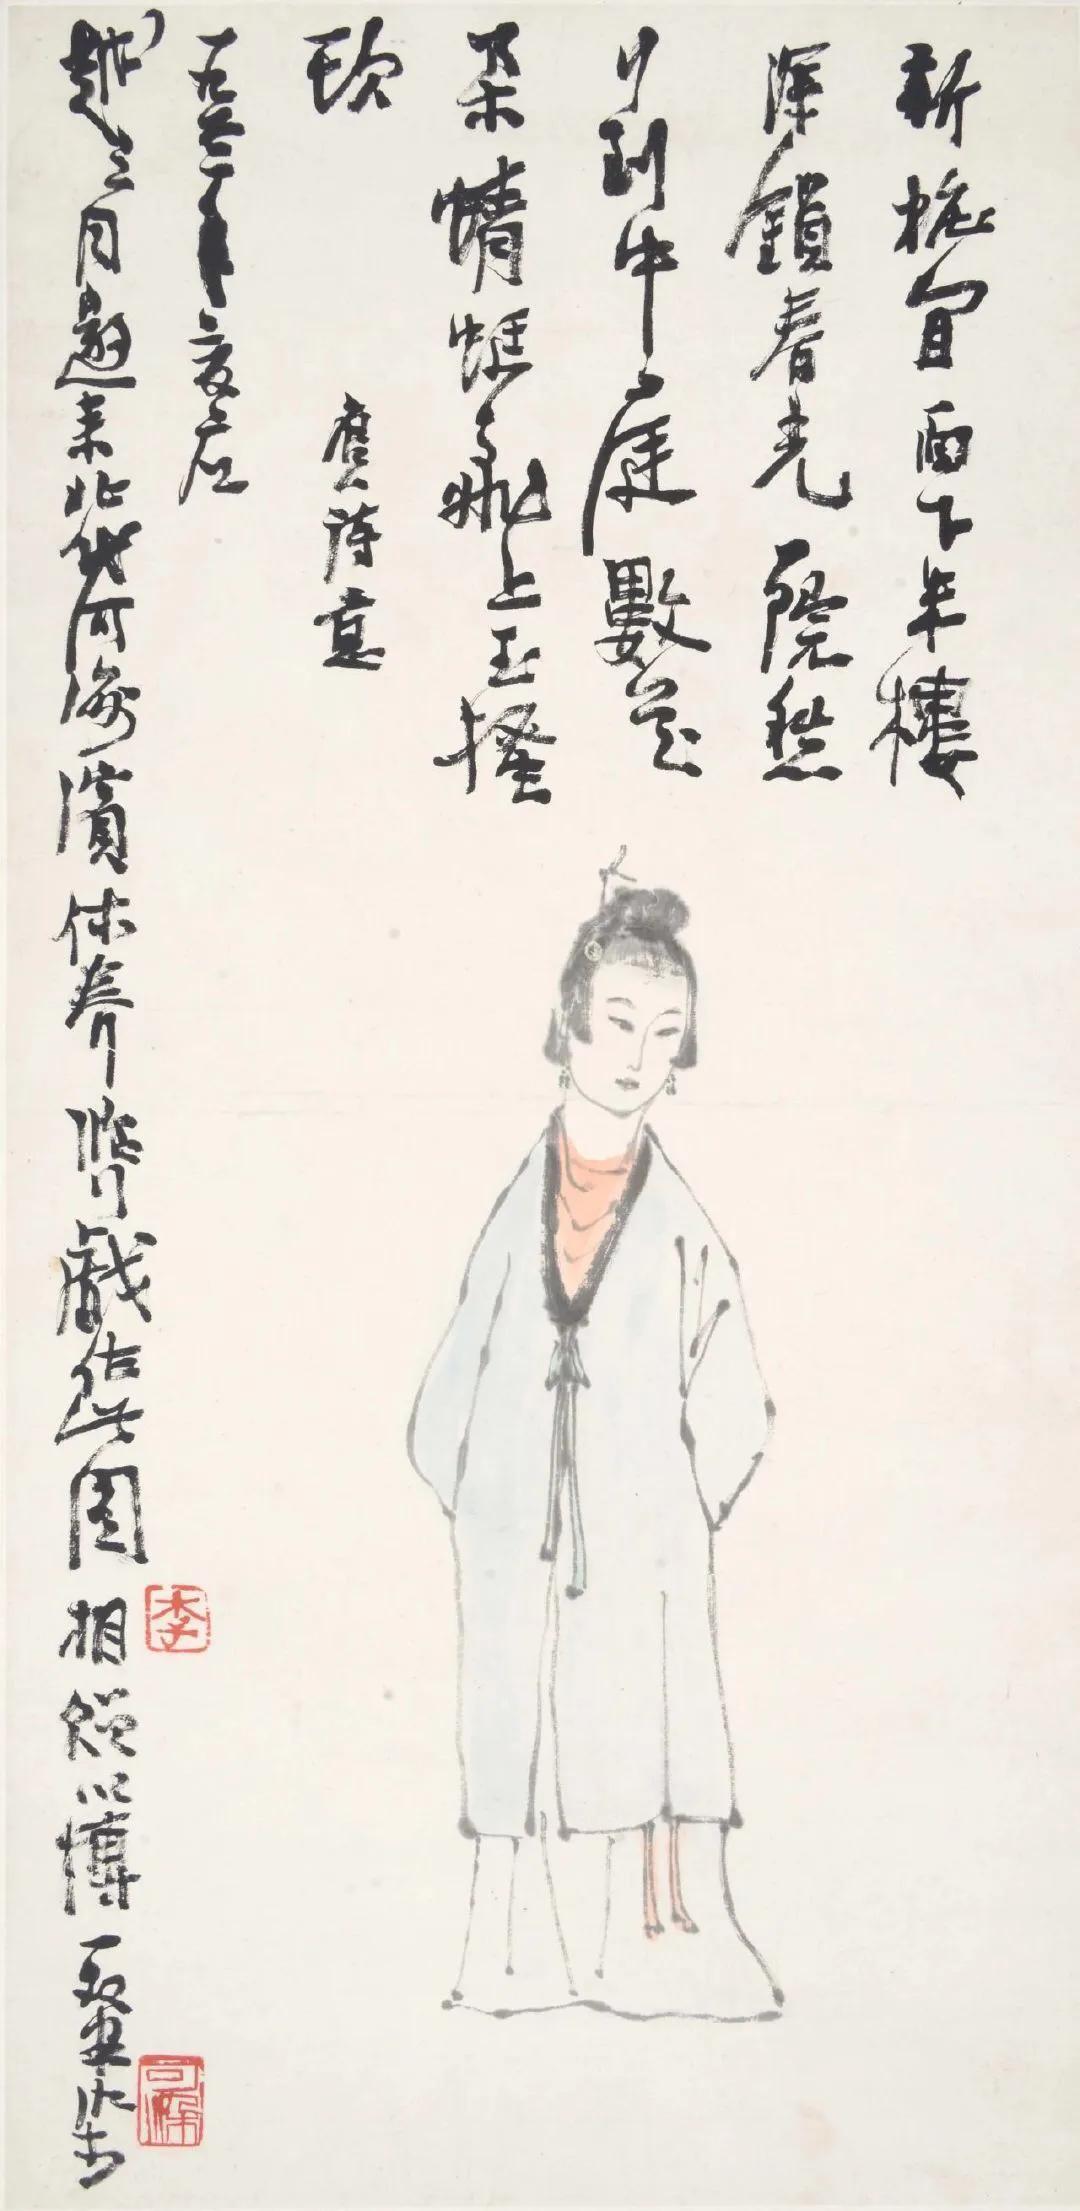 新粧宜面下朱樓
深鎖春光一院愁
行到中庭數花
朵蜻蜓飛上玉搔
頭
唐詩意
一九六二年夏
越三來北戴河海濱休養戲作此圖相贈以博一粲可染
李
可染